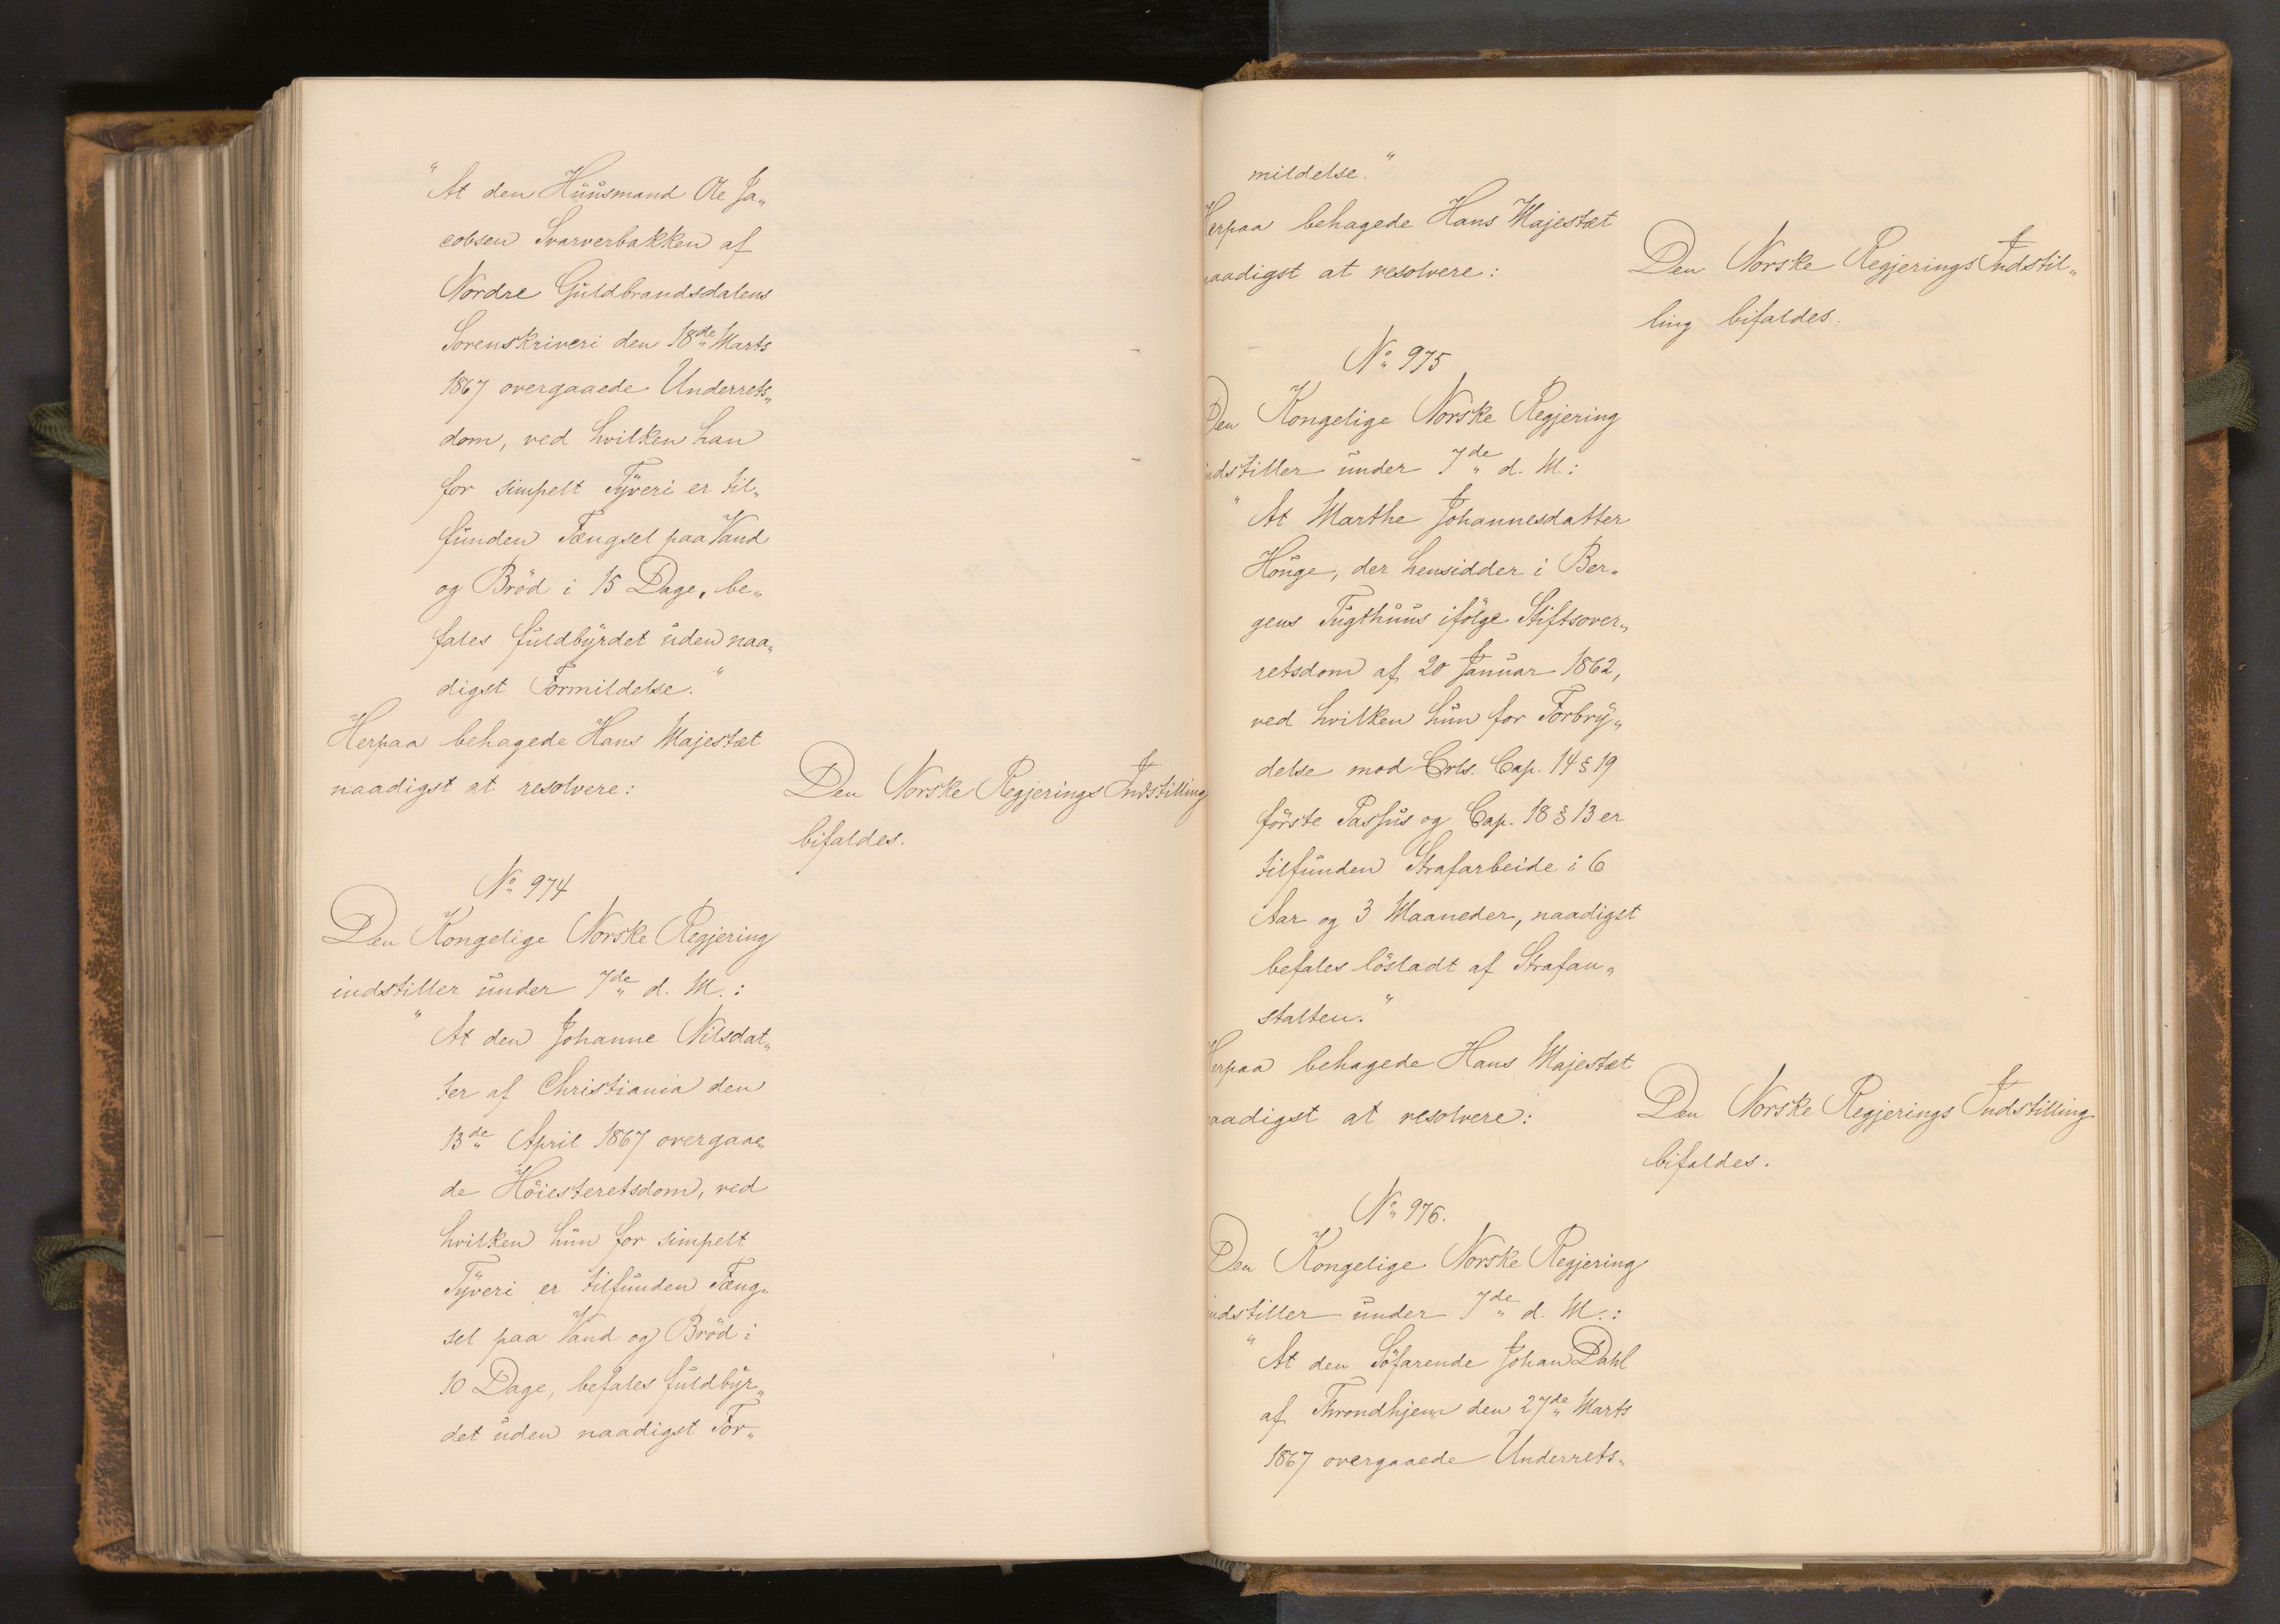 "At den Huusmand Ole Ja„
cobsen Svarverbakken af
Nordre Guldbrandsdalens
Sorenskriveri den 18de Marts
1867 overgaaede Underrets„
dom, ved hvilken han
for simpelt Tyveri er til„
funden Fængsel paa Vand
og Bröd i 15 Dage, be„
fales fuldbyrdet uden naa„
digst Formildelse."
Herpaa behagede Hans Majestæt
naadigst at resolvere:
Den Norske Regjerings Indstilling
bifaldes.
No 974
Den Kongelige Norske Regjering
indstiller under 7de d. M.:
"At den Johanne Nilsdat„
ter af Christiania den
13de April 1867 overgaae„
de Höiesteretsdom, ved
hvilken hun for simpelt
Tyveri er tilfunden Fæng„
sel paa Vand og Bröd i
10 Dage, befales fuldbyr„
det uden naadigst For„
mildelse."
Herpaa behagede Hans Majestæt
naadigst at resolvere:
Den Norske Regjerings Indstil„
ling bifaldes.
No 975
Den Kongelige Norske Regjering
indstiller under 7de d. M.:
"At Marthe Johannesdatter
Houge, der hensidder i Ber„
gens Tugthuus ifölge Stiftsover„
retsdom af 20 Januar 1862,
ved hvilken hun for Forbry„
delse mod Crls. Cap. 14 § 19
förste Passus og Cap. 18 § 13 er
tilfunden Strafarbeide i 6
Aar og 3 Maaneder, naadigst
befales lösladt af Strafan„
stalten."
Herpaa behagede Hans Majestæt
naadigst at resolvere:
Den Norske Regjerings Indstilling
bifaldes.
No 976.
Den Kongelige Norske Regjering
indstiller under 7de d. M.:
"At den Söfarende Johan Dahl
af Throndhjem den 27de Marts
1867 overgaaede Underrets„